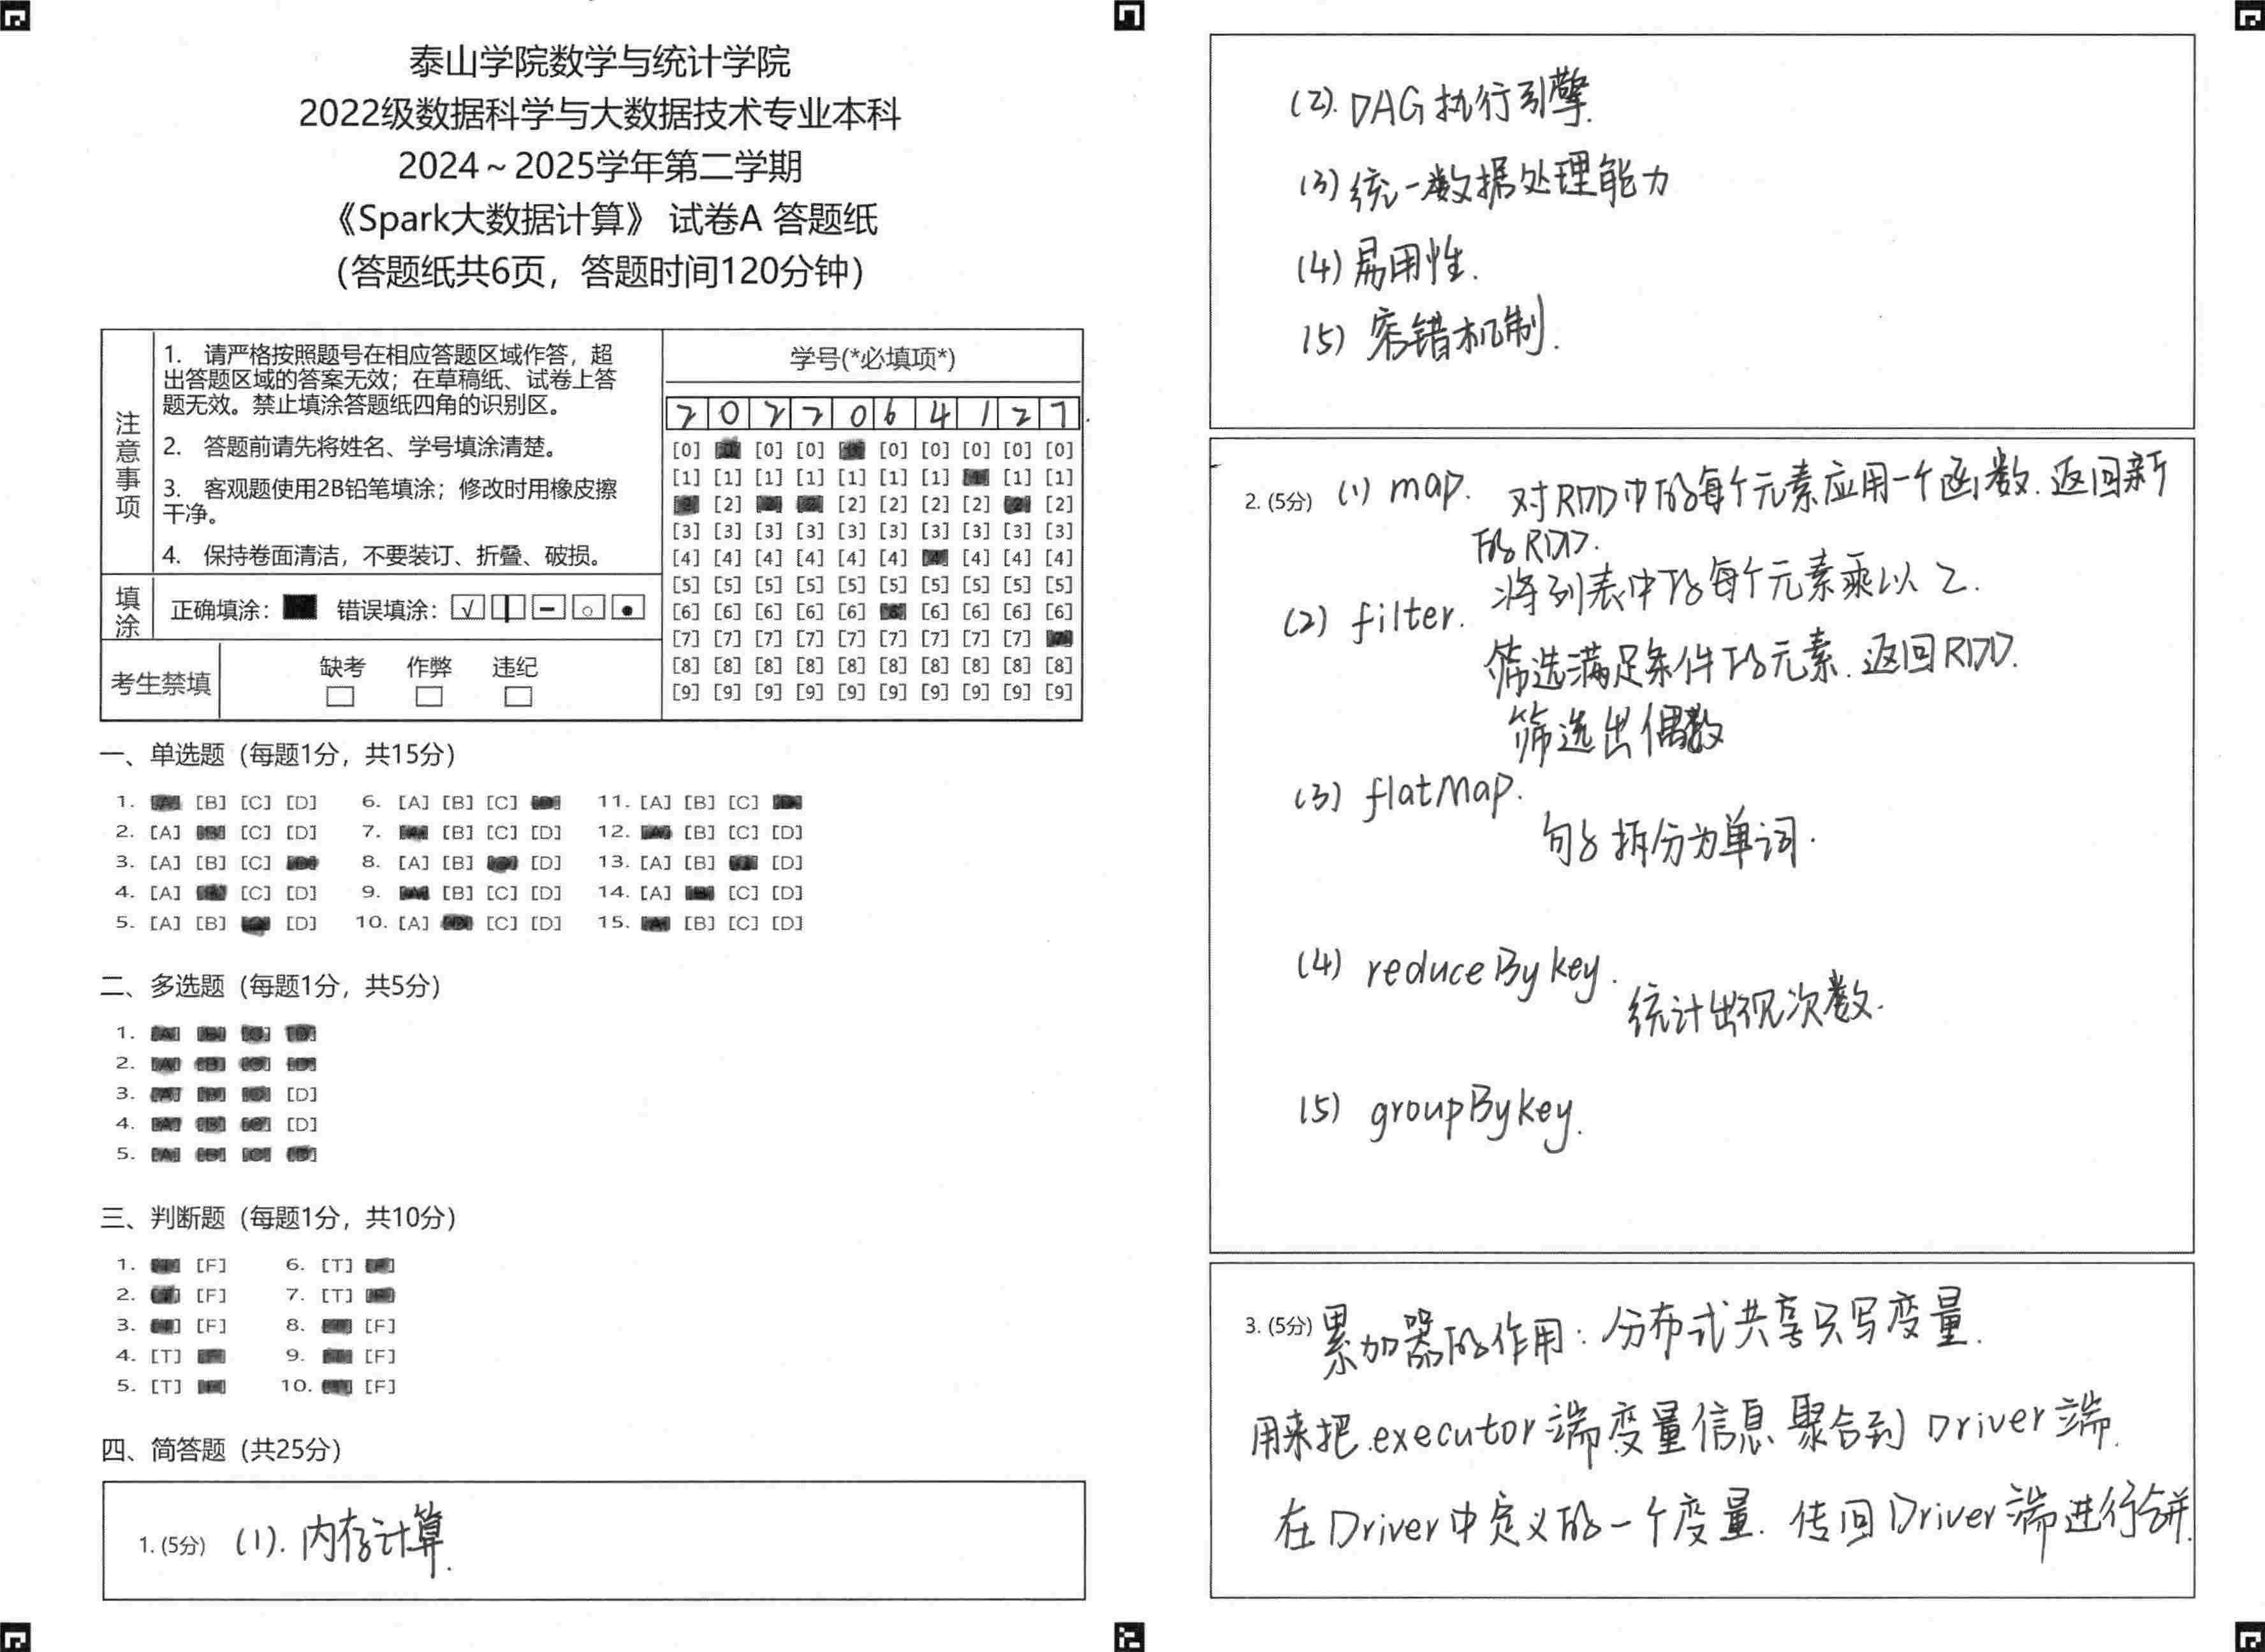 泰山学院数学与统计学院
2022级数据科学与大数据技术专业本科
2024～2025学年第二学期
《Spark大数据计算》 试卷A 答题纸
（答题纸共6页，答题时间120分钟）
注意事项
1. 请严格按照题号在相应答题区域作答，超
出答题区域的答案无效；在草稿纸、试卷上答
题无效。禁止填涂答题纸四角的识别区。
2. 答题前请先将姓名、学号填涂清楚。
3. 客观题使用2B铅笔填涂；修改时用橡皮擦
干净。
4. 保持卷面清洁，不要装订、折叠、破损。
填涂
正确填涂： 错误填涂： √
考生禁填
缺考 作弊 违纪
学号(*必填项*)
2 0 2 2 0 6 4 1 2 7
[0] [0] [0] [0] [0] [0] [0] [0]
[1] [1] [1] [1] [1] [1] [1] [1] [1]
[2] [2] [2] [2] [2] [2]
[3] [3] [3] [3] [3] [3] [3] [3] [3] [3]
[4] [4] [4] [4] [4] [4] [4] [4] [4] [4]
[5] [5] [5] [5] [5] [5] [5] [5] [5] [5]
[6] [6] [6] [6] [6] [6] [6] [6] [6]
[7] [7] [7] [7] [7] [7] [7] [7] [7]
[8] [8] [8] [8] [8] [8] [8] [8] [8] [8]
[9] [9] [9] [9] [9] [9] [9] [9] [9] [9]
一、单选题（每题1分，共15分）
1. [A] [B] [C] [D] 6. [A] [B] [C] 11. [A] [B] [C]
2. [A] [C] [D] 7. [B] [C] [D] 12. [B] [C] [D]
3. [A] [B] [C] 8. [A] [B] [D] 13. [A] [B] [D]
4. [A] [C] [D] 9. [B] [C] [D] 14. [A] [C] [D]
5. [A] [B] [D] 10. [A] [C] [D] 15. [B] [C] [D]
二、多选题（每题1分，共5分）
1. [A] [B] [C] [D]
2. [A] [B] [C] [D]
3. [A] [B] [C] [D]
4. [A] [B] [C] [D]
5. [A] [B] [C] [D]
三、判断题（每题1分，共10分）
1. [F] 6. [T]
2. [F] 7. [T]
3. [F] 8. [F]
4. [T] 9. [F]
5. [T] 10. [F]
四、简答题（共25分）
1. (5分) (1). 内存计算.
(2). DAG执行引擎.
(3) 统一数据处理能力
(4) 易用性.
(5) 容错机制.
2. (5分) (1) map. 对RDD中的每个元素应用一个函数.返回新
的RDD.
将列表中的每个元素乘以2.
(2) filter.
筛选满足条件的元素.返回RDD.
筛选出偶数
(3) flatMap.
句子拆分为单词.
(4) reduceByKey.
统计出现次数.
(5) groupByKey.
3. (5分) 累加器的作用：分布式共享只写变量.
用来把.executor端变量信息聚合到Driver端.
在Driver中定义的一个变量.传回Driver端进行合并.